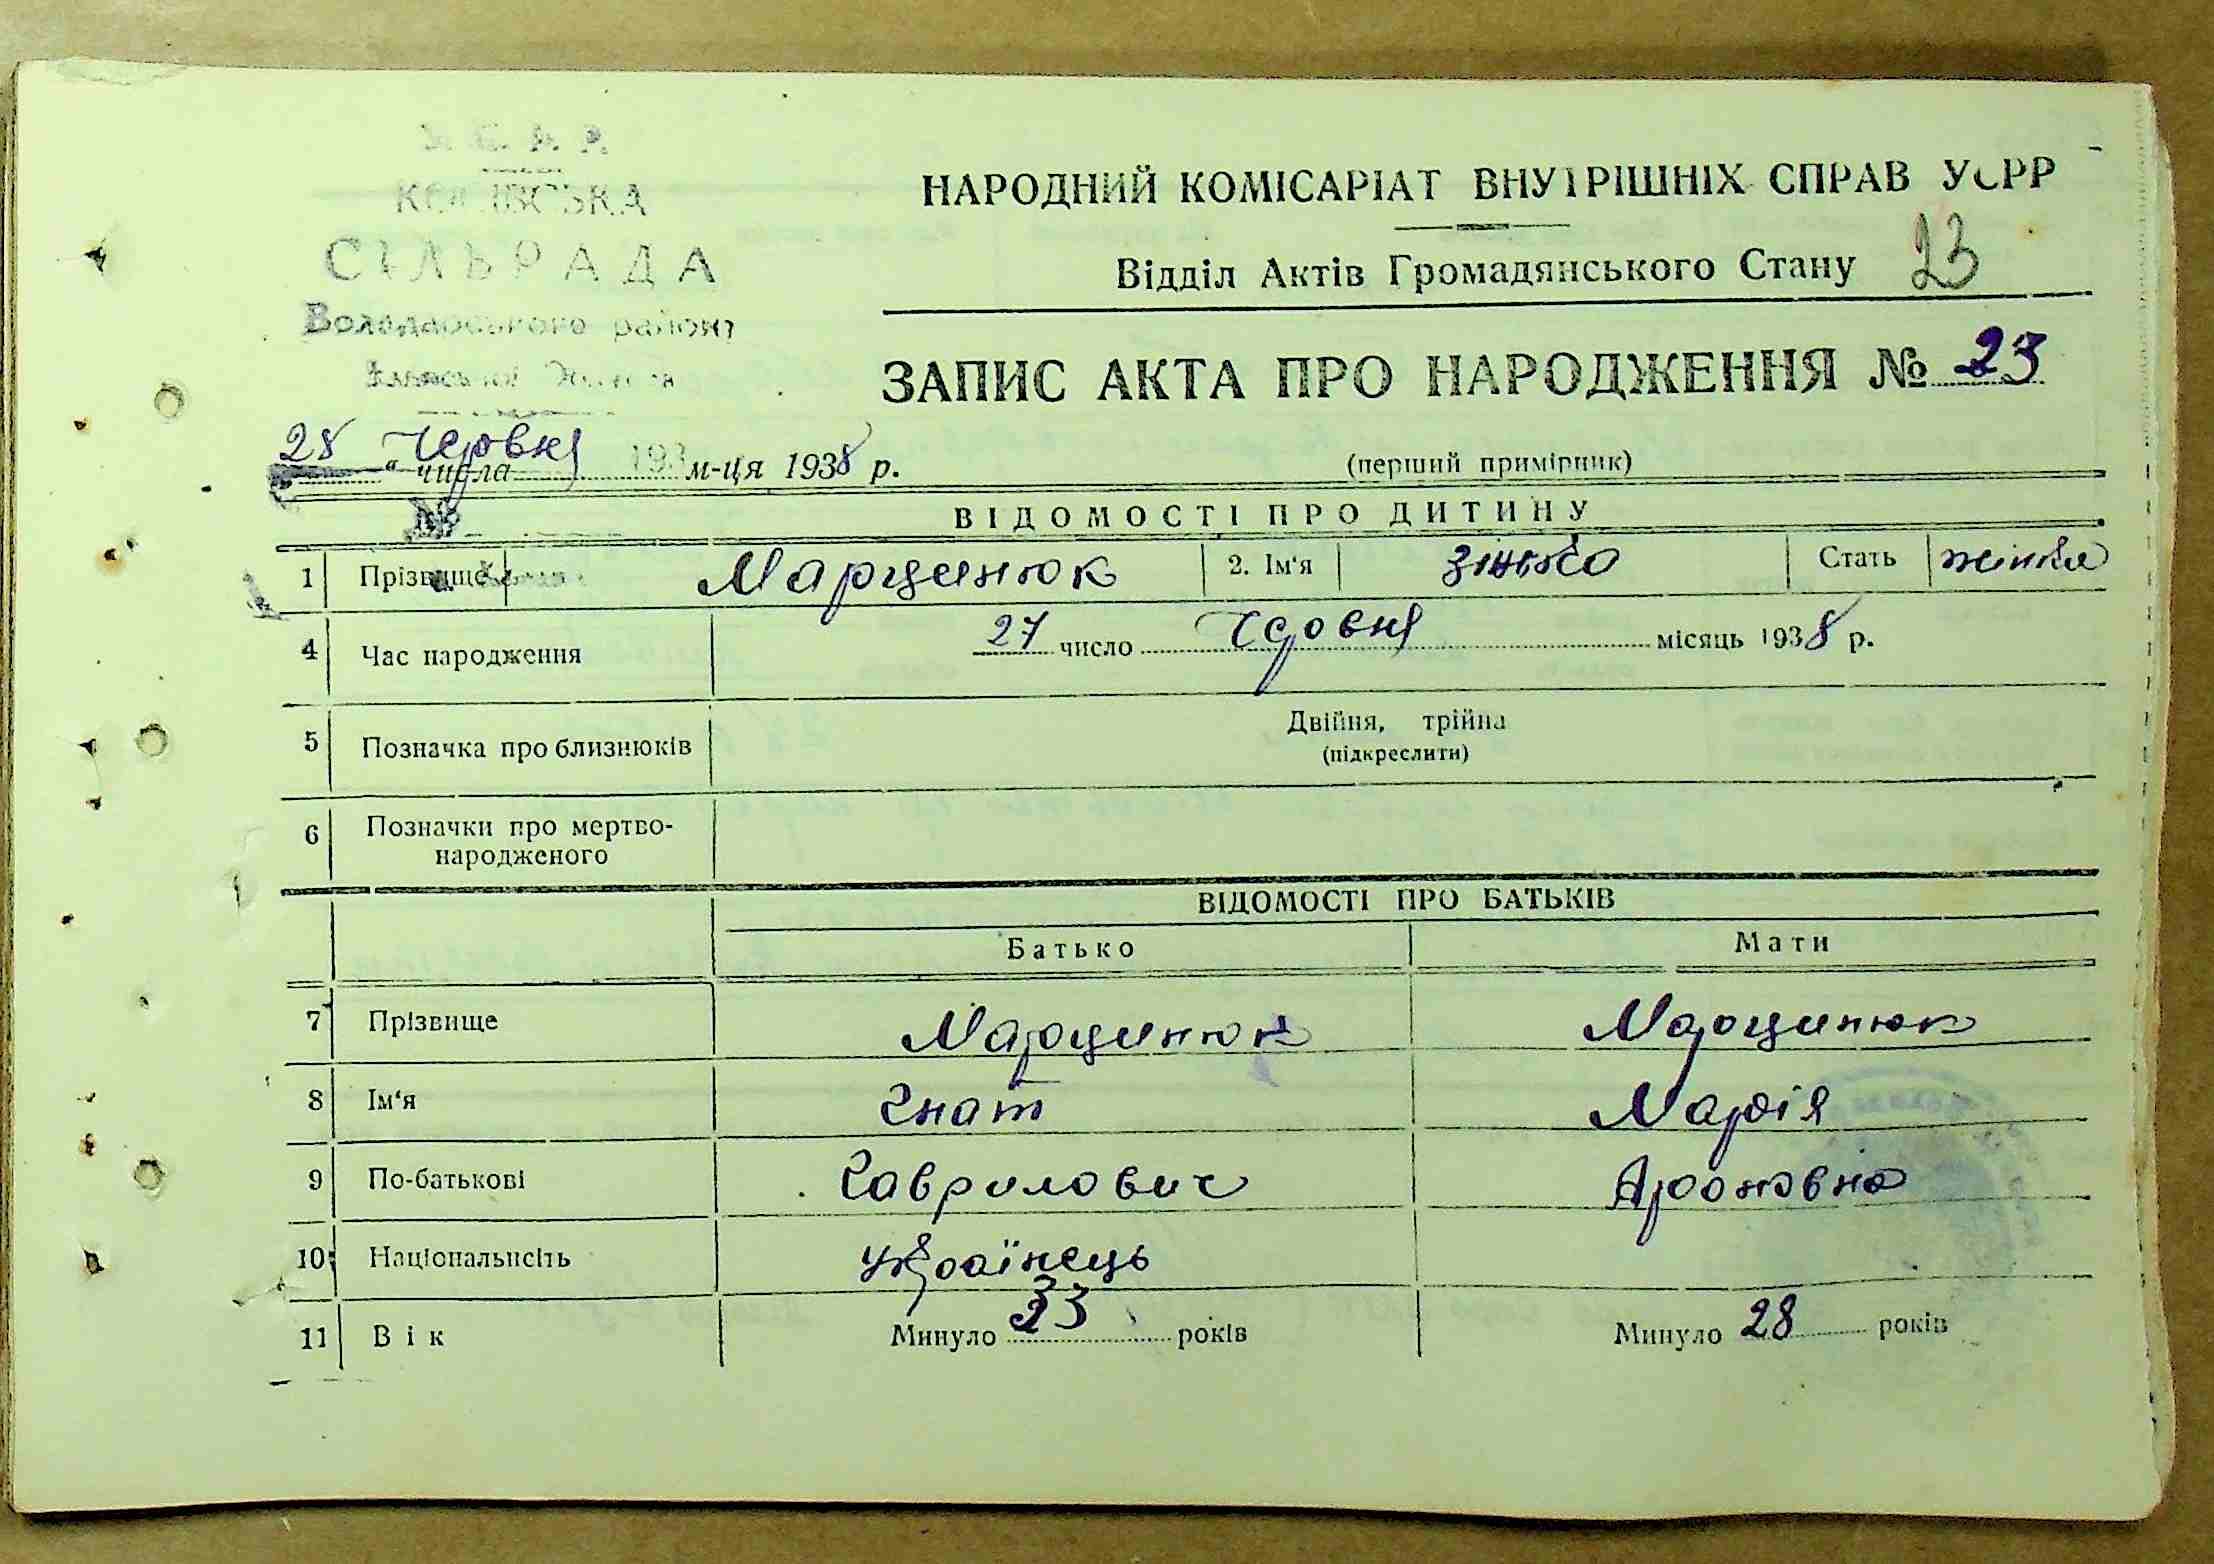 СІЛЬРАДА
Володарського району
НАРОДНИЙ КОМІСАРІАТ ВНУТРІШНІХ СПРАВ УСРР
Відділ Актів Громадянського Стану 23
ЗАПИС АКТА ПРО НАРОДЖЕННЯ № 23
28 " числа Червня м-ця 1938 р.
(перший примірник)
ВІДОМОСТІ ПРО ДИТИНУ
1 Прізвище Марцинюк 2. Ім'я Зінька Стать жінка
4 Час народження 27 число Червня місяць 1938 р.
5 Позначка про близнюків Двійня, трійна
(підкреслити)
6 Позначки про мертво-
народженого
ВІДОМОСТІ ПРО БАТЬКІВ
Батько Мати
7 Прізвище Марцинюк Марцинюк
8 Ім'я Гнат Марія
9 По-батькові Гаврилович Ароновна
10 Національність Українець
11 Вік Минуло 33 років Минуло 28 років